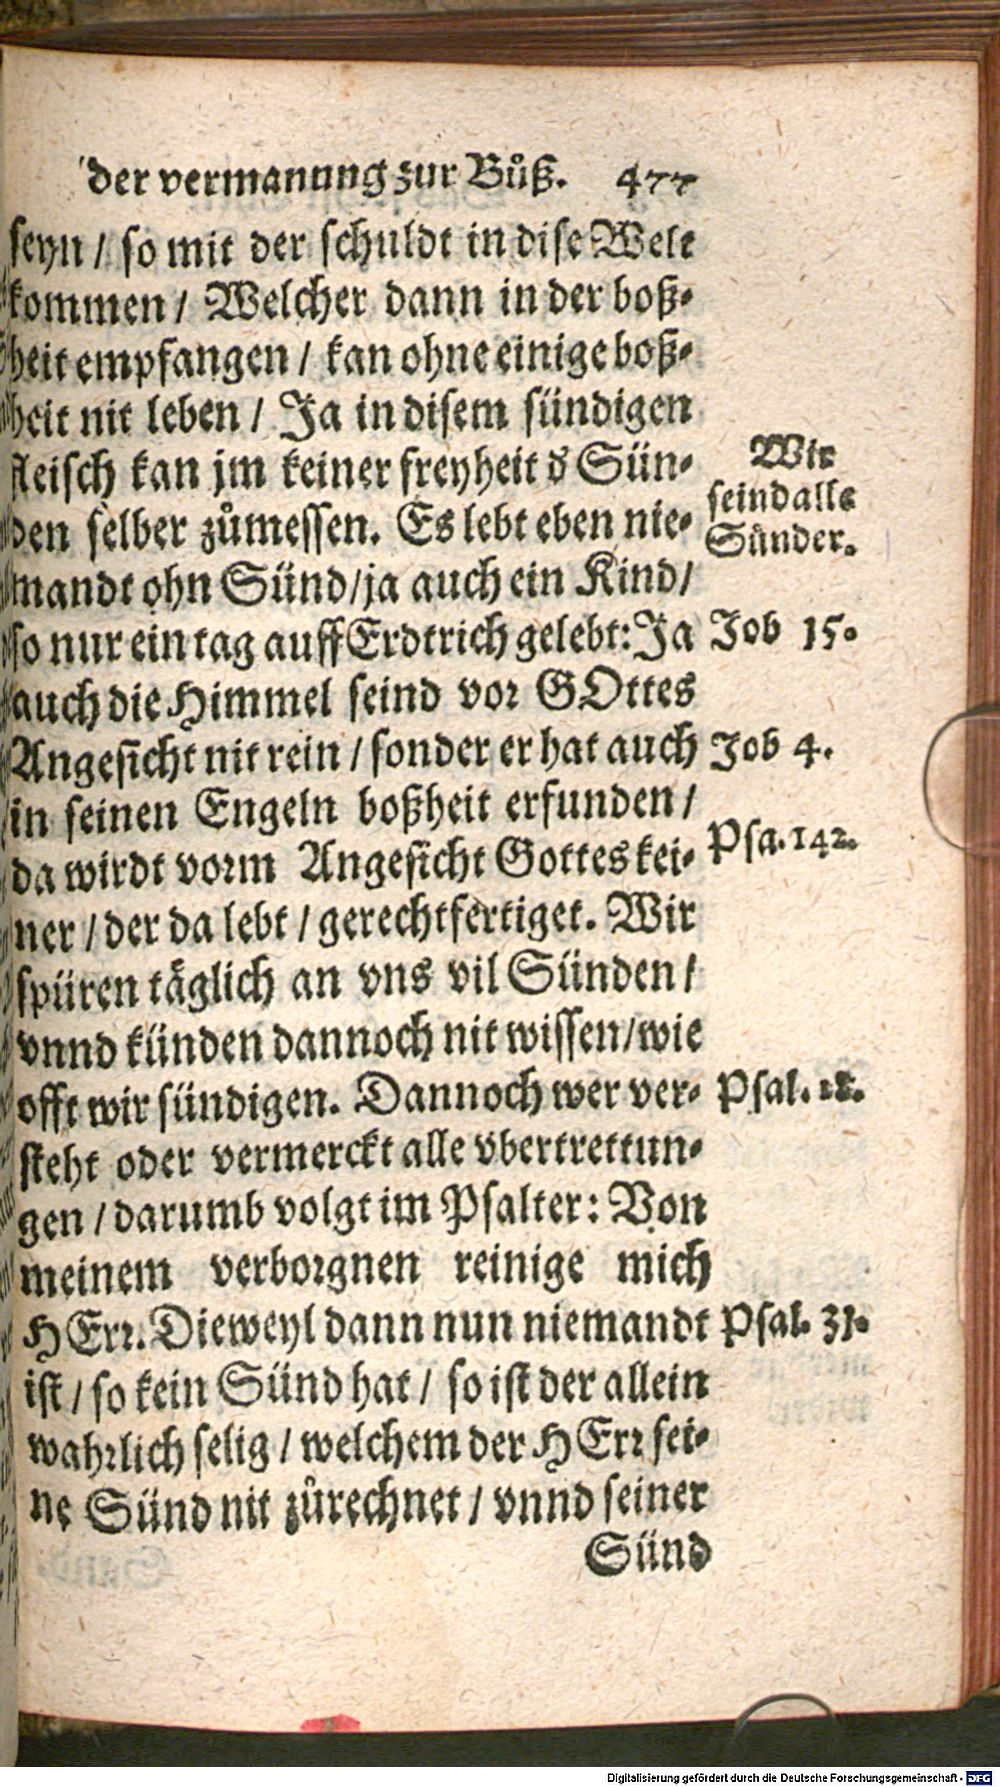 der vermanung zur Bůß. 477
seyn / so mit der schuldt in dise Welt
kommen / Welcher dann in der boß-
heit empfangen / kan ohne einige boß-
heit nit leben / Ja in disem sündigen
fleisch kan jm keiner freyheit d Sün-
den selber zůmessen. Es lebt eben nie-
mandt ohn Sünd/ja auch ein Kind/
so nur ein tag auff Erdtrich gelebt: Ja
auch die Himmel seind vor GOttes
Angesicht nit rein / sonder er hat auch
in seinen Engeln boßheit erfunden /
da wirdt vorm Angesicht Gottes kei-
ner / der da lebt / gerechtfertiget. Wir
spüren täglich an vns vil Sünden /
vnnd künden dannoch nit wissen/wie
offt wir sündigen. Dannoch wer ver-
steht oder vermerckt alle vbertrettun-
gen / darumb volgt im Psalter: Von
meinem verborgnen reinige mich
HErr. Dieweyl dann nun niemandt
ist / so kein Sünd hat / so ist der allein
wahrlich selig / welchem der HErr sei-
ne Sünd nit zůrechnet / vnnd seiner
Sünd
Wir
seind alle
Sünder.
Job 15.
Job 4.
Psa. 142.
Psal. 18.
Psal. 31.
Digitalisierung gefördert durch die Deutsche Forschungsgemeinschaft - DFG